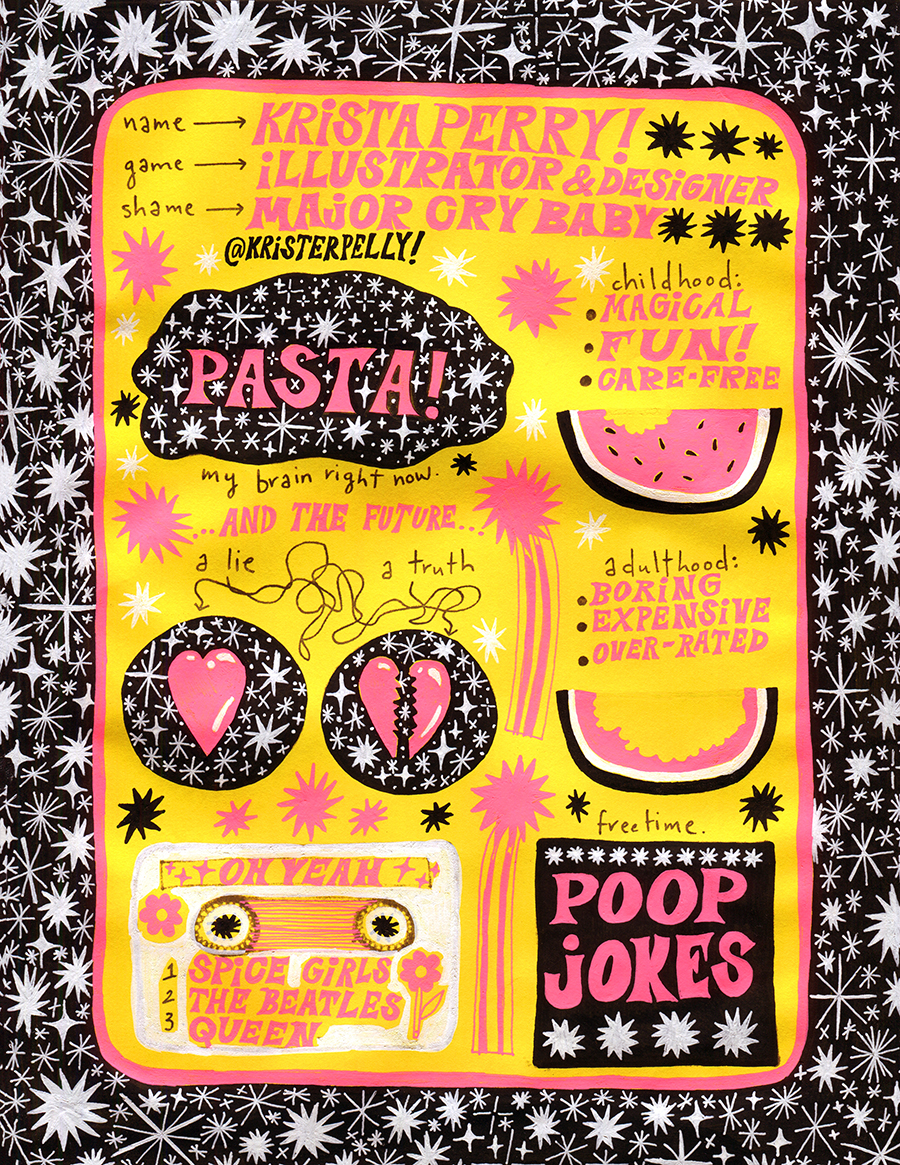 name → KRiSTA PERRY!
game → iLLUSTRATOR & DESiGNER
shame → MAJOR CRY BABY
@KRiSTERPELLY!
PASTA!
my brain right now.
childhood:
• MAGiCAL
• FUN!
• CARE-FREE
...AND THE FUTURE...
a lie
a truth
adulthood:
• BORiNG
• EXPENSiVE
• OVER-RATED
OH YEAH
1 SPiCE GiRLS
2 THE BEATLES
3 QUEEN
freetime.
POOP
JOKES